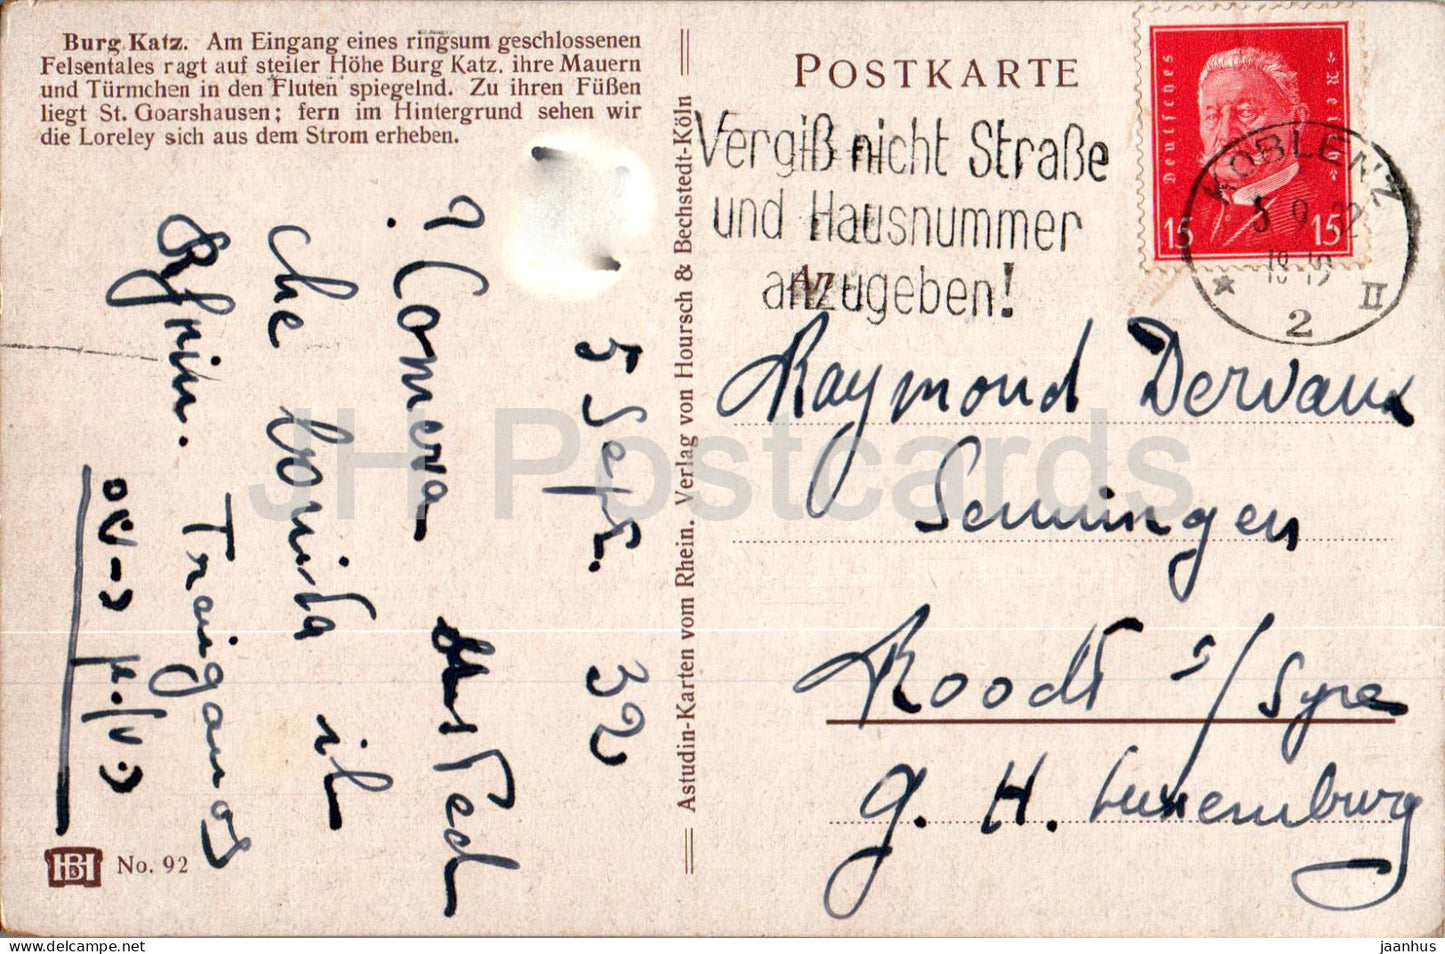 Burg Katz. Am Eingang eines ringsum geschlossenen
Felsentales ragt auf steiler Höhe Burg Katz, ihre Mauern
und Türmchen in den Fluten spiegelnd. Zu ihren Füßen
liegt St. Goarshausen; fern im Hintergrund sehen wir
die Loreley sich aus dem Strom erheben.
5 Sept. 32
che bonita il
Rhin.
HB
No. 92
Astudin-Karten vom Rhein. Verlag von Hoursch & Bechstedt-Köln
POSTKARTE
Deutsches Reich
15 15
KOBLENZ
2 II
Vergiß nicht Straße
und Hausnummer
anzugeben!
An
Raymond Dervaux
Senningen
Roodt s/Syre
G. H. Luxemburg
JH Postcards
jaanhus
delcampe.net